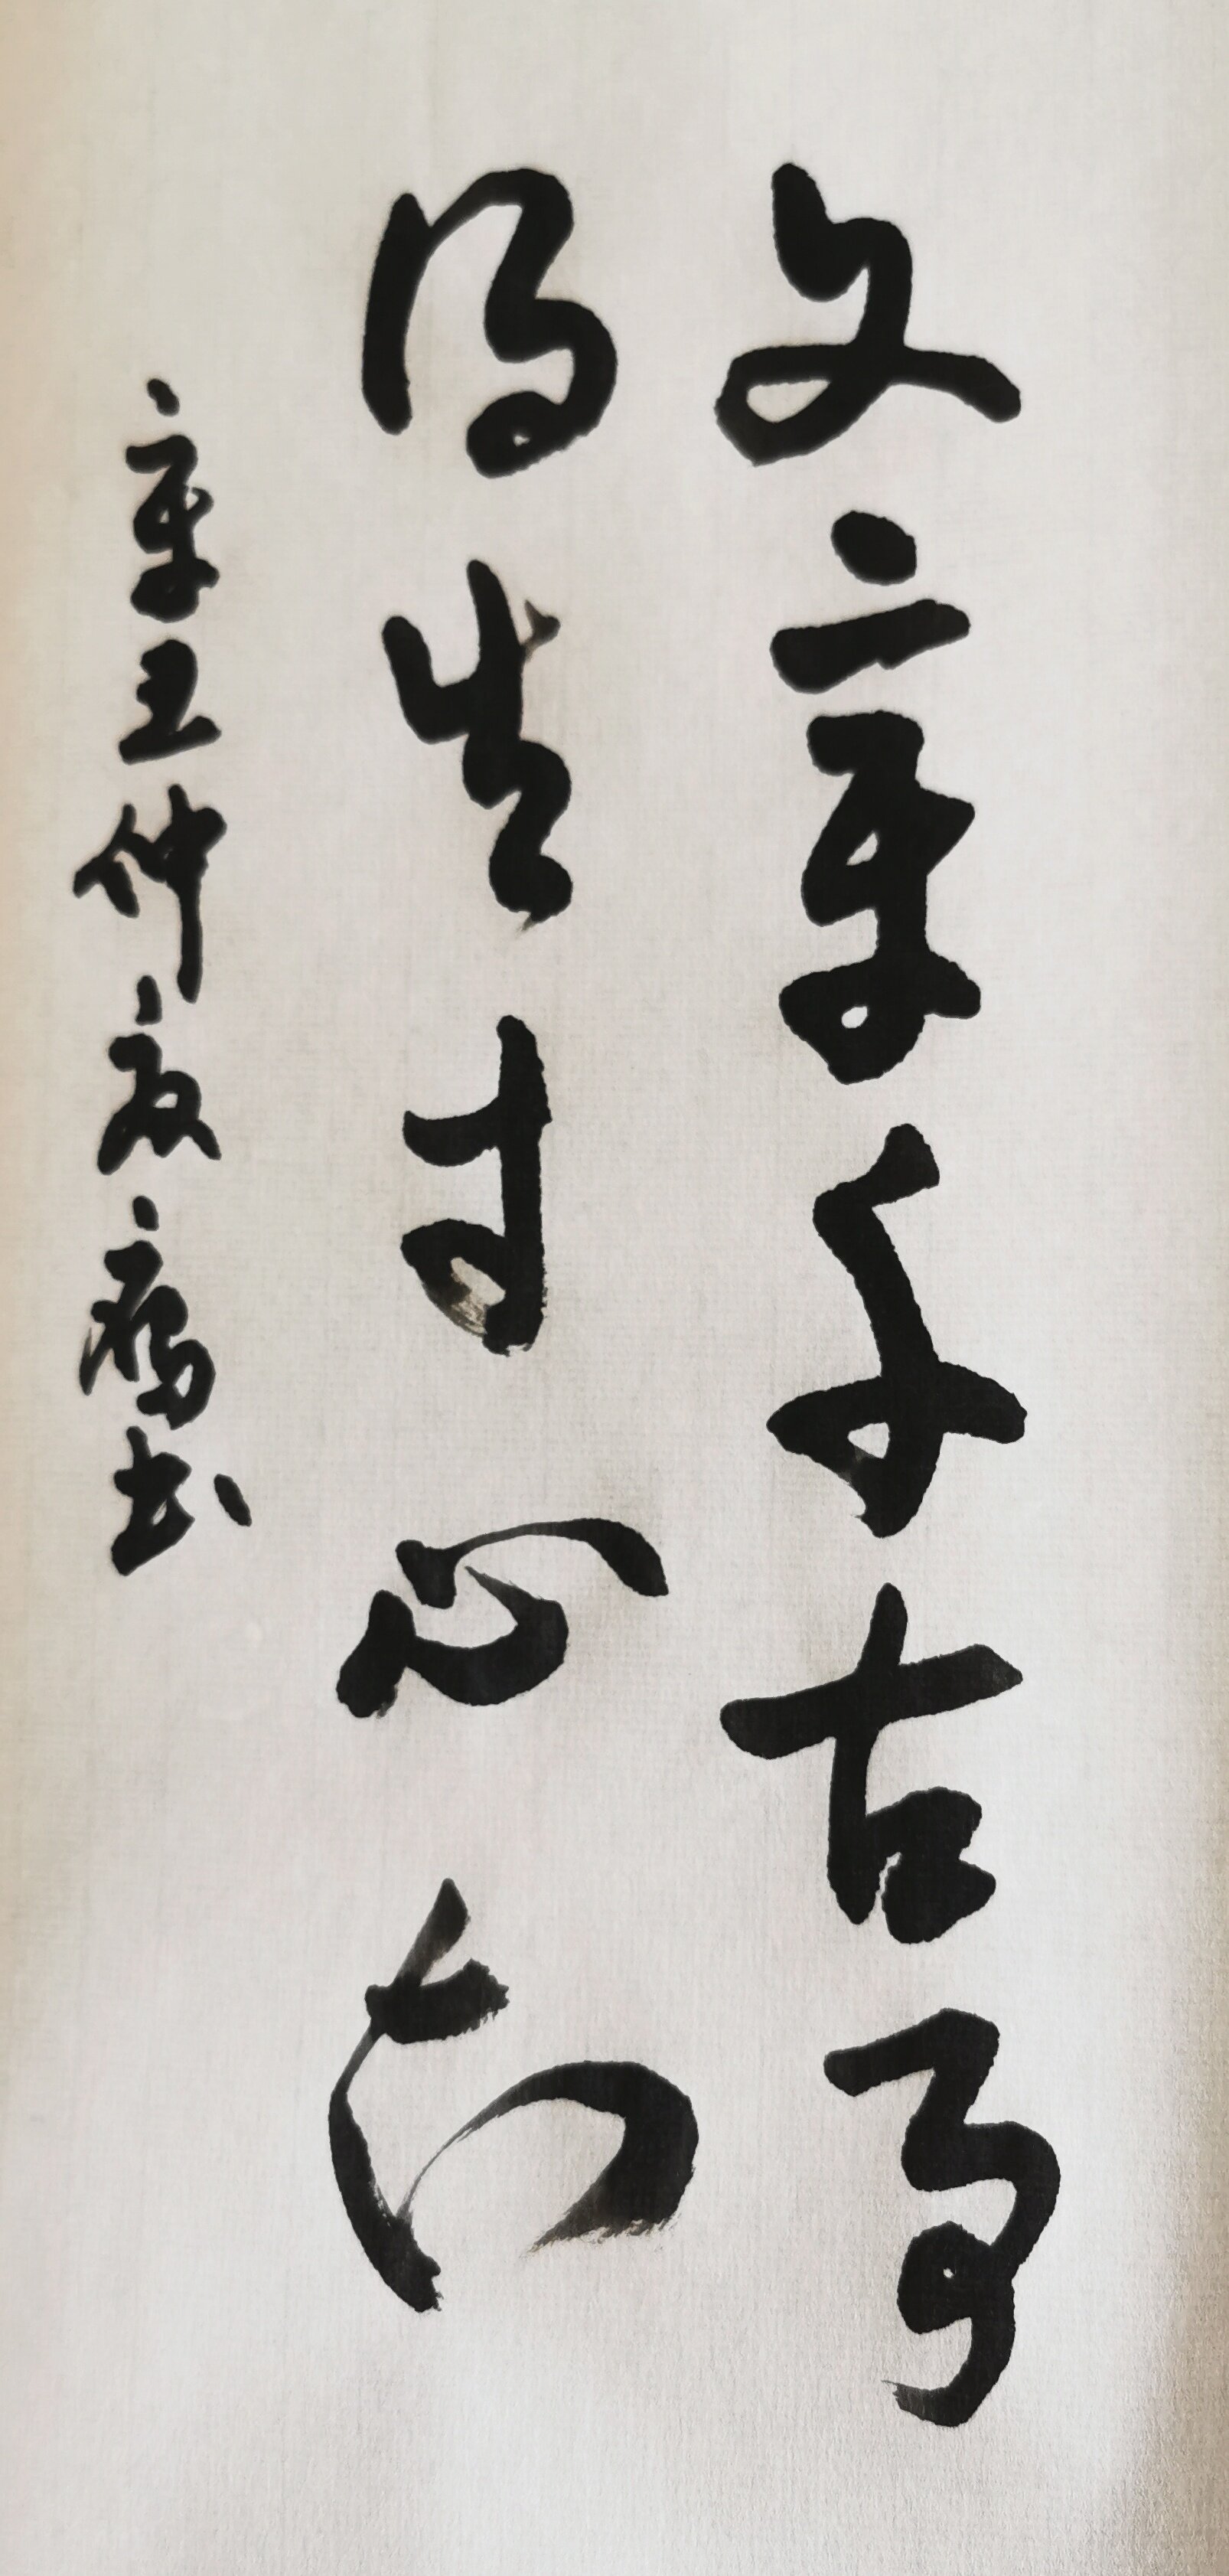 文章千古事
得失寸心知
辛丑仲夏腐書